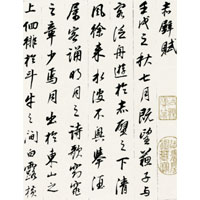 赤壁賦
壬戌之秋七月既望蘇子與
客泛舟遊於赤壁之下清
風徐來水波不興舉酒
屬客誦明月之詩歌窈窕
之章少焉月出於東山之
上徊徘於斗牛之間白露橫